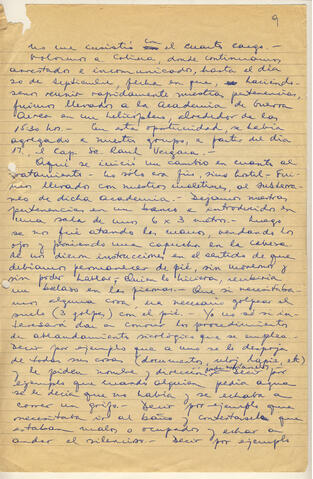 9
no me insistió con el cuarto cargo.-
Volvimos a Colina, donde continuamos
arrestados e incomunicados, hasta el día
20 de septiembre, fecha en que, haciendo-
senos reunir rapidamente nuestras pertenencias,
fuimos llevados a la Academia de Guerra
Aérea en un helicóptero, alrededor de las
1630 hrs.- En esta oportunidad, se había
agregado a nuestro grupo, a partir del día
17, el Cap. Sr. Raul Vergara.-
Aquí se inició un cambio en cuanto al
tratamiento.- No sólo era frío, sino hostil.- Fui-
mos llevados con nuestros maletines, al subterra-
neo de dicha academia.- Dejamos nuestras
pertenencias en un banco e introducidos en
una sala de unos 6 x 3 metros.- Luego
se nos fue atando las manos, vendando los
ojos y poniendo una capucha en la cabeza
Se nos dieron instrucciones en el sentido de que
debíamos permanecer de pié, sin movernos y
sin poder hablar. Quien lo hiciera, recibiría
un balazo en las piernas.- Que si necesitaba-
mos alguna cosa, era necesario golpear el
suelo (3 golpes) con el pié.- Yo no sé si in-
teresará dar a conocer los procedimientos
de ablandamiento sicológico que se emplea.-
Decir por ejemplo que a uno se le despoja
de todas sus cosas (documentos, reloj, lapiz, etc)
y le piden nombre y dirección
Decir por
ejemplo que cuando alguien pedía agua
se le decía que no había y se echaba a
correr un grifo.- Decir por ejemplo que
necesitaba ir al baño y contestarle que
estaban malos o ocupados y echar a
andar el silencioso.- Decir por ejemplo